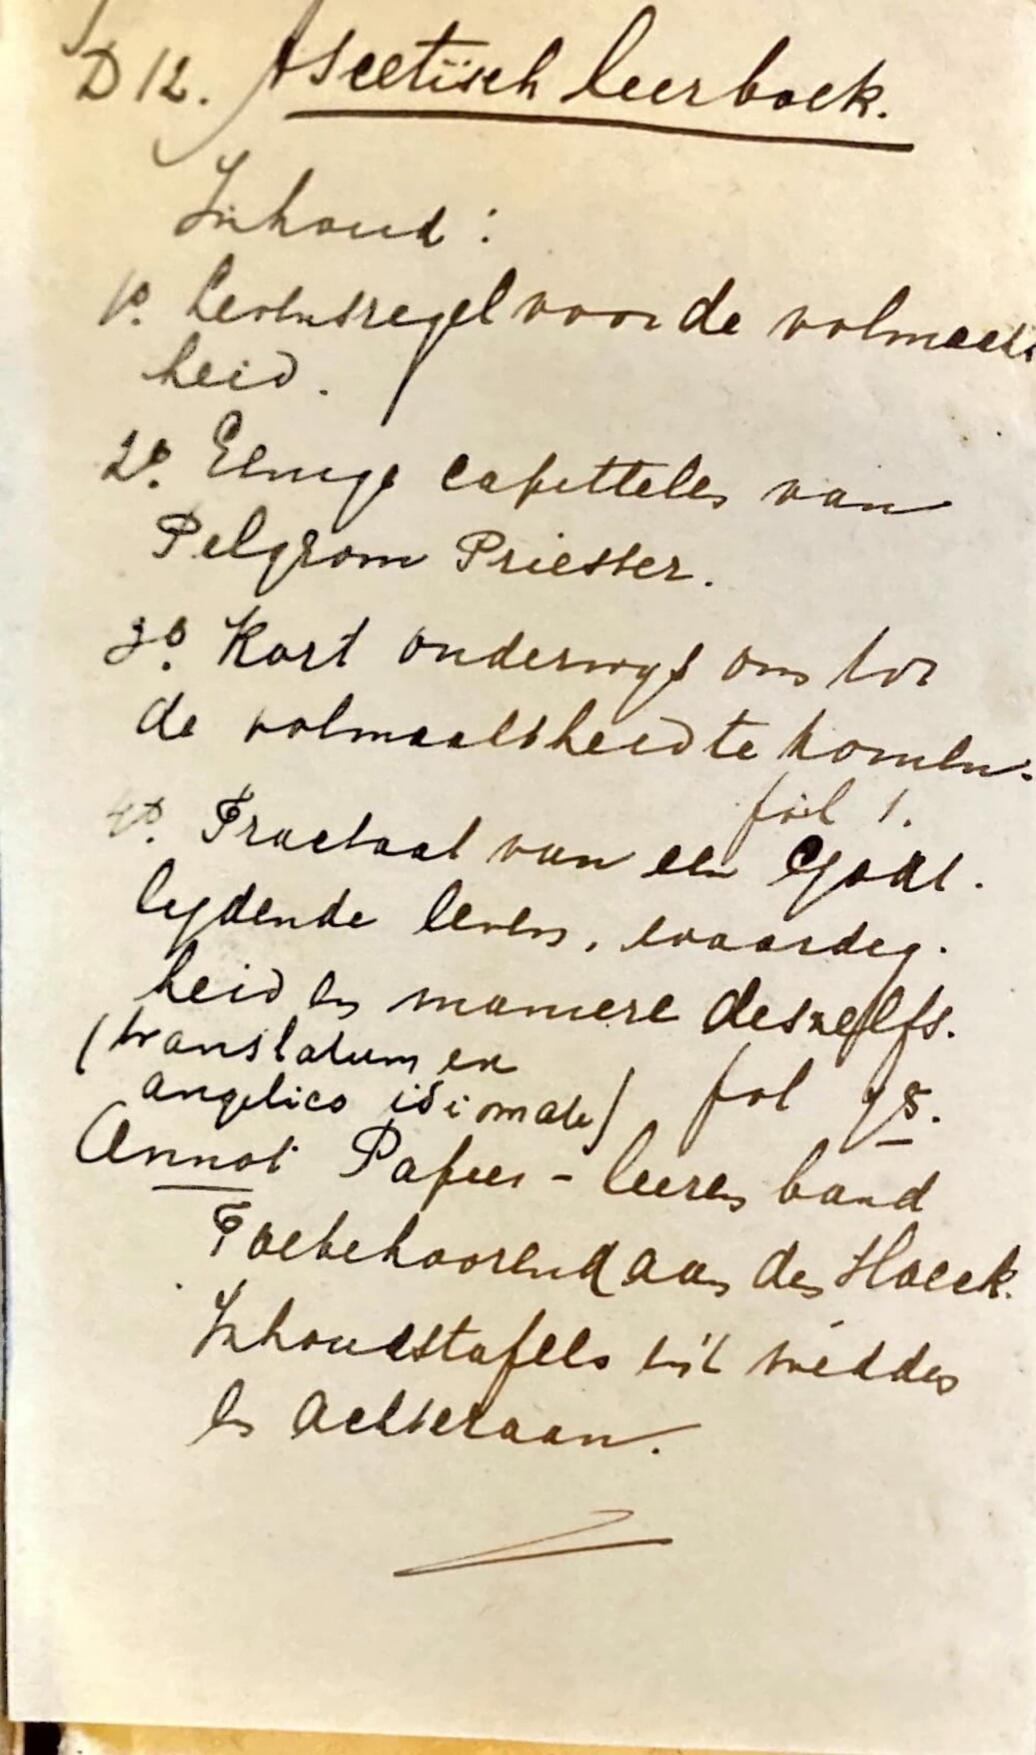 D 12. Ascetisch leerboek.
Inhoud :
1º. Levensregel voor de volmaakt
heid.
2º. Eenige capittelen van
Pelgrom Priester.
3º. Kort onderwys om tot
de volmaaktheid te komen.
fol 1.
4º. Tractaat van een Godt.
lydende leven, waardig.
heid en maniere deszelfs.
(translatum ex
angelico idiomate) fol 75.
Annot Papier - leeren band
Toebehoorend aan den Hoeck.
Inhoudstafels in't midden
en achteraan.